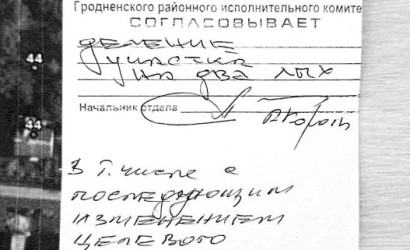 Гродненского районного исполнительного комите
СОГЛАСОВЫВАЕТ
ДЕЛЕНИЕ
УЧАСТКА
НА ДВА
Начальник отдела
44
44
В Т. ЧИСЛЕ С
ПОСЛЕДУЮЩИМ
ИЗМЕНЕНИЕМ
ЦЕЛЕВОГО